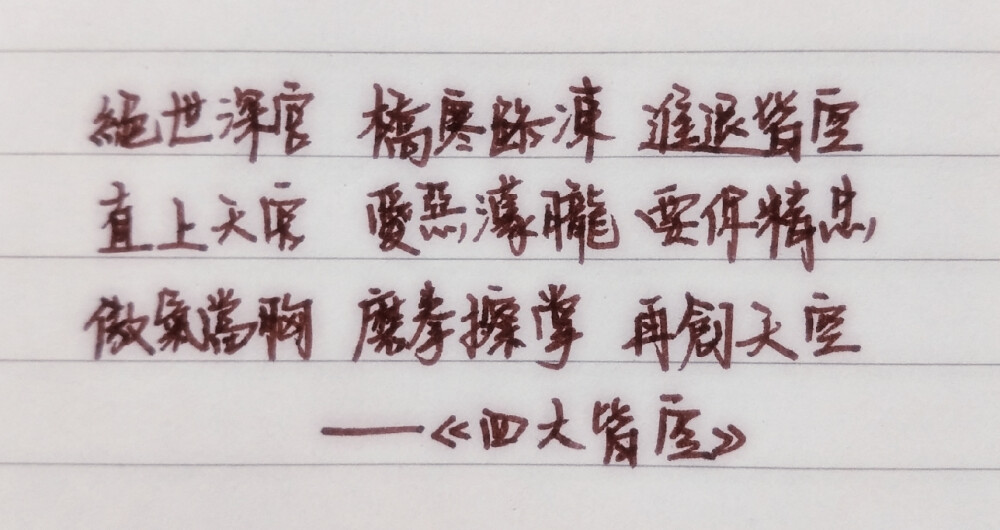 絕世深宮 橋寒路凍 進退皆空
直上天宮 愛惡濛朧 要俾精忠
傲氣當胸 磨拳擦掌 再創天空
——《四大皆空》